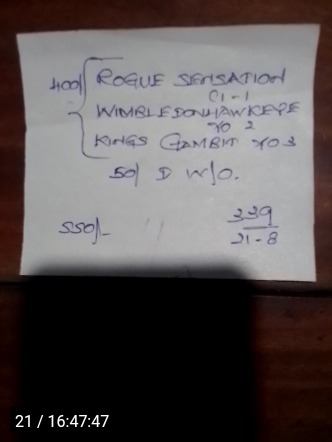 400/ ROGUE SENSATION
C1-1
WIMBLEDON HAWKEYE
TO 2
KINGS GAMBIT TO 3
50/ D W/O.
550/-
339
21-8
21 / 16:47:47